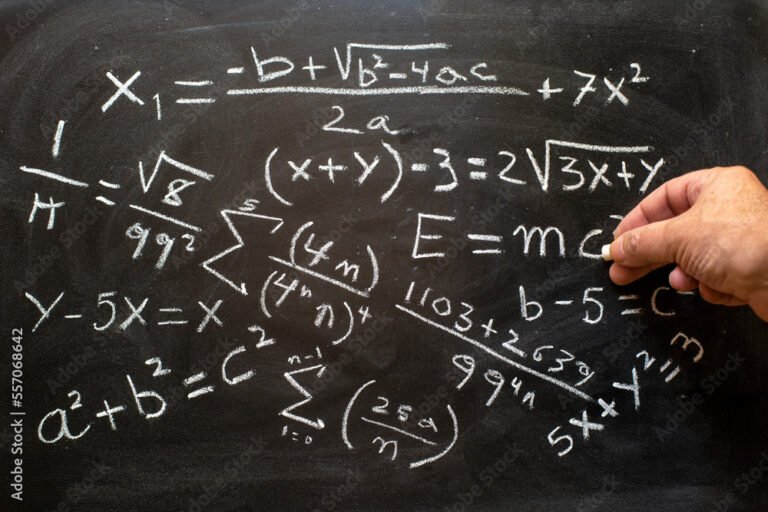 x₁ = (-b + √(b² - 4ac)) / 2a + 7x²
1/π = √8 / 99²
(x + y) - 3 = 2√(3x + y)
∑⁵ (4n) / (4ⁿ n)⁴
E = mc²
y - 5x = x
1103 + 2639 / 99⁴ⁿ
b - 5 = c
a² + b² = c²
n-1 ∑ i=0 (25a / n)
Adobe Stock | #557068642